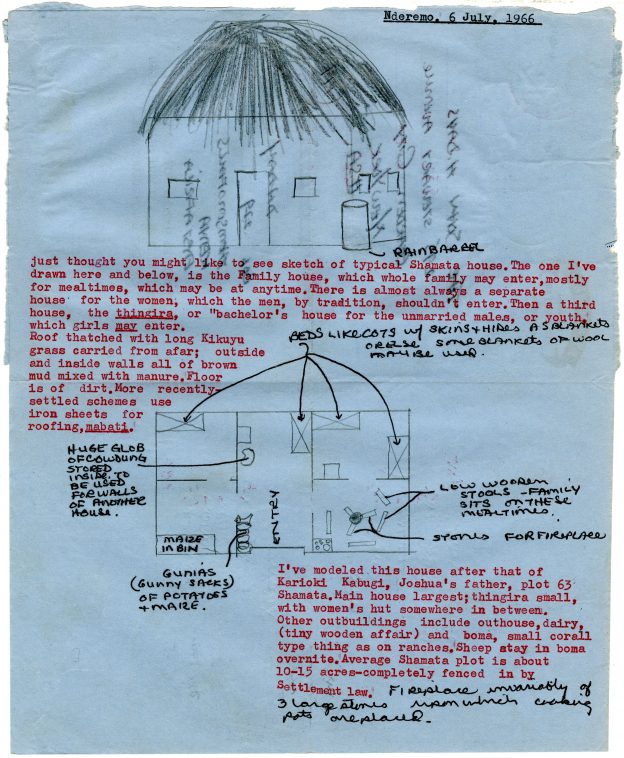 Nderemo, 6 July, 1966
RAINBARREL
just thought you might like to see sketch of typical Shamata house.The one I've
drawn here and below, is the Family house, which whole family may enter,mostly
for mealtimes, which may be at anytime.There is almost always a separate
house for the women, which the men, by tradition, shouldn't enter.Then a third
house, the thingira, or "bachelor's house for the unmarried males, or youth,
which girls may enter.
Roof thatched with long Kikuyu
grass carried from afar; outside
and inside walls all of brown
mud mixed with manure.Floor
is of dirt.More recently-
settled schemes use
iron sheets for
roofing,mabati.
BEDS LIKE COTS W/ SKINS + HIDES AS BLANKETS
OR ELSE SOME BLANKETS OF WOOL
MAY BE USED.
HUGE GLOB
OF COWDUNG
STORED
INSIDE TO
BE USED
FOR WALLS
OF ANOTHER
HOUSE.
LOW WOODEN
STOOLS - FAMILY
SITS ON THESE
MEALTIMES.
STONES FOR FIREPLACE
ENTRY
MAIZE
IN BIN
GUNIAS
(GUNNY SACKS)
OF POTATOES
+ MAIZE.
I've modeled this house after that of
Karioki Kabugi, Joshua's father, plot 63
Shamata.Main house largest;thingira small,
with women's hut somewhere in between.
Other outbuildings include outhouse,dairy,
(tiny wooden affair) and boma, small corall
type thing as on ranches.Sheep stay in boma
overnite.Average Shamata plot is about
10-15 acres-completely fenced in by
Settlement law. FIREPLACE invariably of
3 large stones upon which cooking
pots are placed.